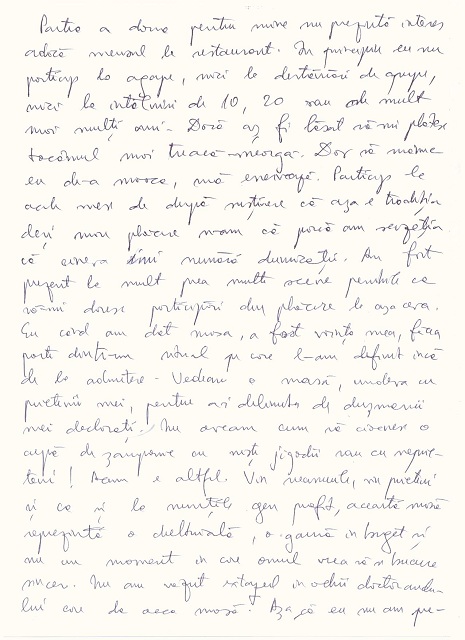 Partea a doua pentru mine nu prezintă interes
adică mersul la restaurant. In principiu eu nu
particip la agape, nici la destinderi de grup,
nici la întâlniri de 10, 20 sau de mult
mai mulți ani. Dacă aș fi lăsat să-mi plătesc
tacâmul mai treacă-meargă. Dar să mănânc
eu de-a moaca, mă enervează. Particip la
acele mese de după susținere că așa e tradiția
deși mare plăcere n-am că parcă am senzația
că cineva îmi numără dumicații. Am fost
prezent la mult prea multe scene penibile ca
să-mi doresc participări din plăcere la așa ceva.
Eu când am dat masa, a fost voința mea, făcea
parte dintr-un ritual pe care l-am definit încă
de la admitere. Vedeam o masă, undeva cu
prietenii mei, pentru a-i delimita de dușmanii
mei declarați. Nu aveam cum să ciocnesc o
cupă de șampanie cu niște jigodii sau cu nepri-
teni! Acum e altfel. Vin neamurile, vin prieteni
și ca și la nunțile gen profit, această masă
reprezintă o cheltuială, o gaură in buget și
nu un moment in care omul vrea să se bucure
sincer. Nu am văzut extazul in ochii doctorandu-
lui care da acea masă. Așa că eu nu am pre-